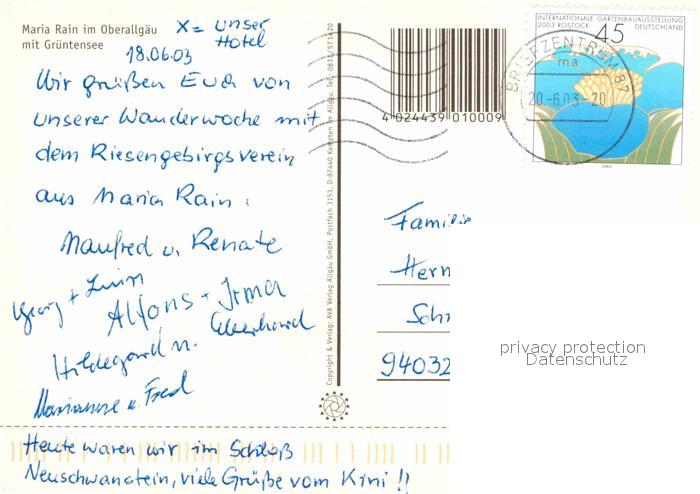 Maria Rain im Oberallgäu
mit Grüntensee
X = unser
Hotel
18.06.03
Wir grüßen Euch von
unserer Wanderwoche mit
dem Riesengebirgsverein
aus Maria Rain.
Manfred u. Renate
Georg +
Alfons + Irma
Eberhard
Hildegard u.
Marianne u. Fred
Heute waren wir im Schloß
Neuschwanstein, viele Grüße vom Kini !!
Copyright & Verlag: AVA Verlag Allgäu GmbH, Postfach 3153, D-87440 Kempten im Allgäu, Tel.: 0831/571420
4 024439 010009
INTERNATIONALE GARTENBAUAUSSTELLUNG
2003 ROSTOCK DEUTSCHLAND
45
BRIEFZENTRUM 87
ma
20.-6.03-20
2003
Familie
Hern
Sch
94032
privacy protection
Datenschutz